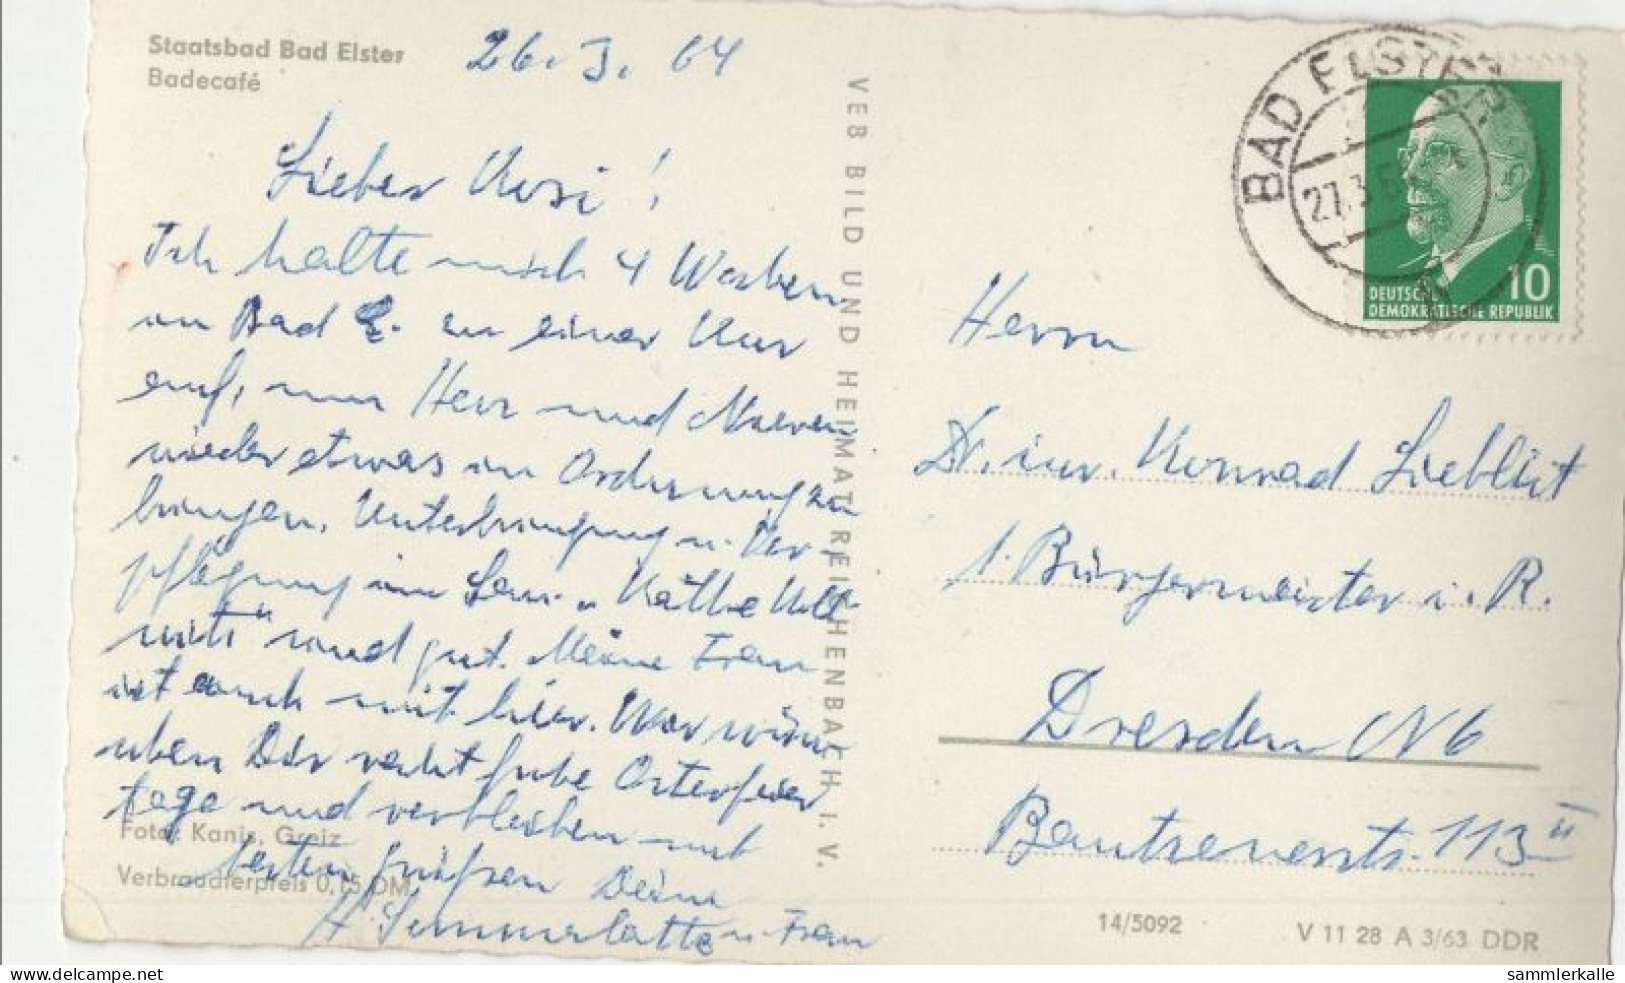 Staatsbad Bad Elster
Badecafé
26. 3. 64
Lieber Kursi!
Ich halte mich 4 Wochen
in Bad E. zu einer Kur
auf, um Herz und Nerven
wieder etwas in Ordnung zu
bringen. Unterbringung u. Ver-
pflegung im San. „Käthe Koll-
witz" sind gut. Meine Frau
ist auch mit hier. Wir wün-
schen Dir recht frohe Osterfeier-
tage und verbleiben mit
besten Grüßen Deine
H. Summerlatte u. Frau
Foto: Kanis, Greiz
Verbraucherpreis 0,15 DM
VEB BILD UND HEIMAT REICHENBACH I. V.
BAD ELSTER
27.3.64
10
DEUTSCHE
DEMOKRATISCHE REPUBLIK
Herrn
Dr. iur. Konrad
1. Bürgermeister i. R.
Dresden N 6
Bautzenerstr. 113 II
14/5092
V 11 28 A 3/63 DDR
sammlerkalle
delcampe.net